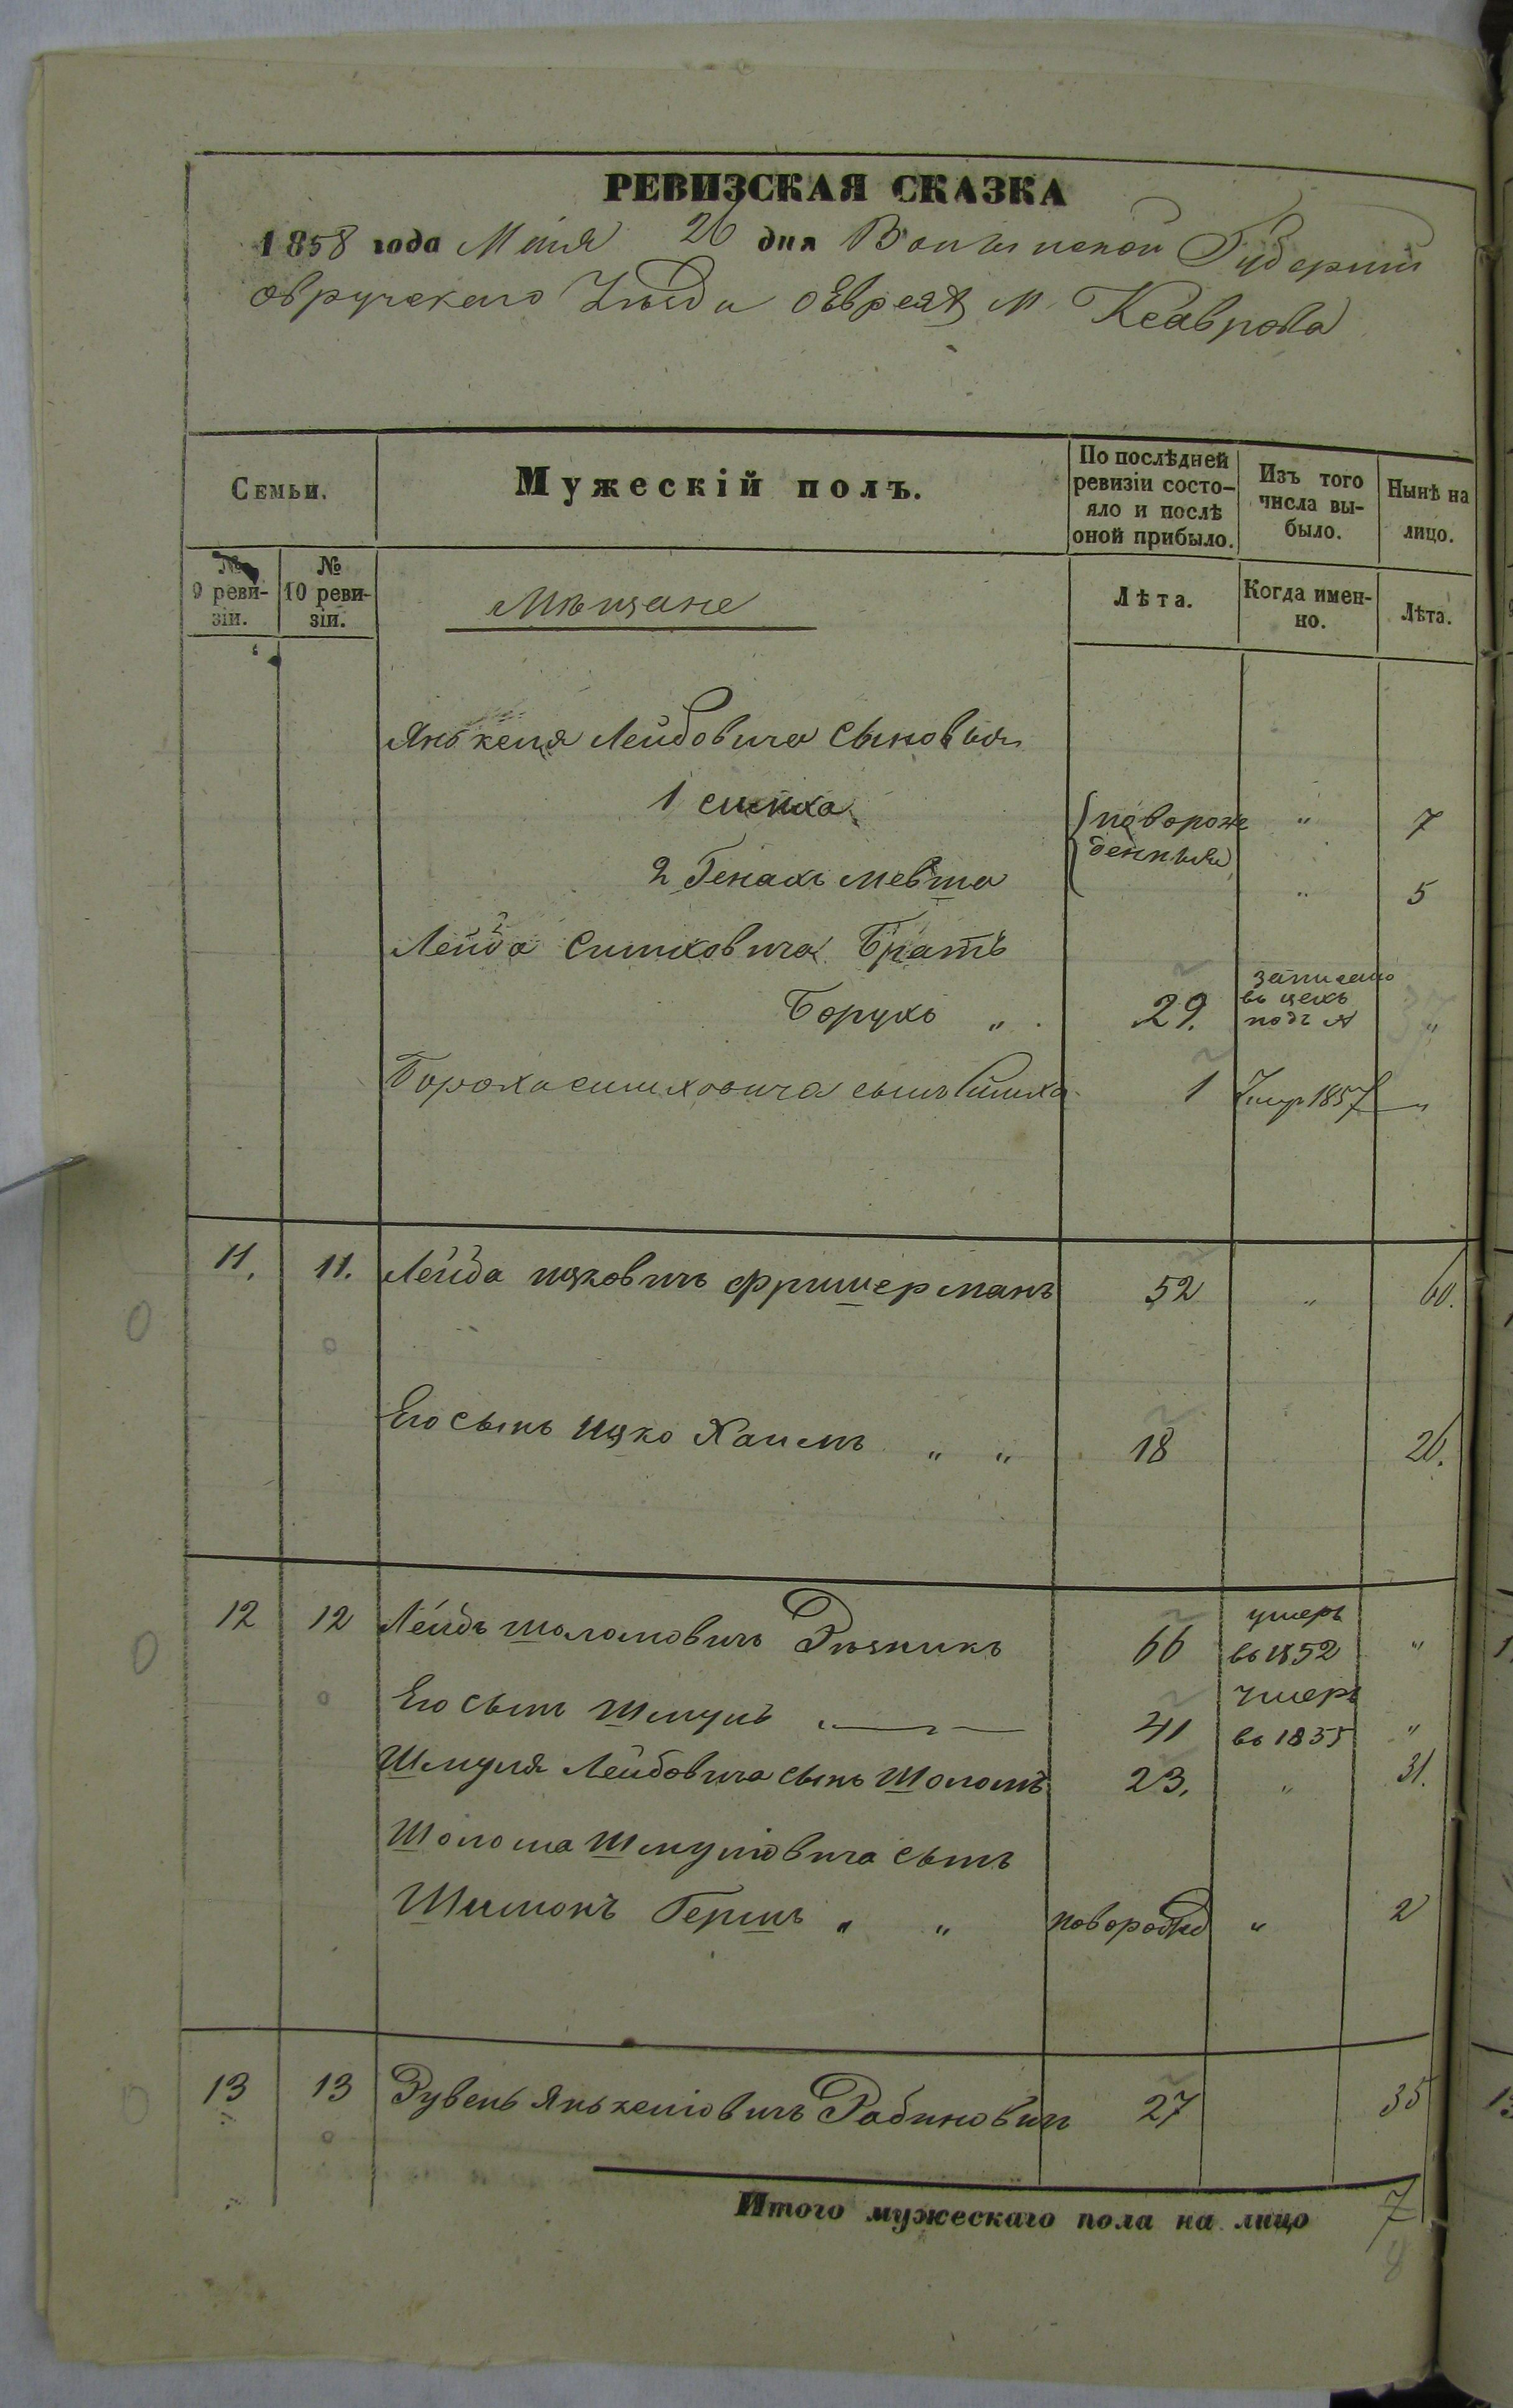 РЕВИЗСКАЯ СКАЗКА
1858 года Маия 26 дня Волынской Губернии
овручскаго Уѣзда о Евреяхъ м. Ксаврова
Семьи.
Мужескій полъ.
По послѣдней ревизіи состо-
яло и послѣ
оной прибыло.
Изъ того
числа вы-
было.
Нынѣ на
лицо.
№
9 реви-
зіи.
№
10 реви-
зіи.
Мѣщане
Лѣта.
Когда имен-
но.
Лѣта.
Янькеля Лейбовича сыновья
1 симха { новорож „ 7
2 Генахъ мевша денныя „ 5
Лейба Симховича Братъ
Борухъ „ 29. записано въ цехъ подъ № „
Бороха симховича сынъ Симха 1 Умер 1857 „
11. 11. Лейба ицковичъ фришерманъ 52 „ 60.
Его сынъ ицко Хаимъ „ „ 18 26.
12 12 Лейбъ шоломовичъ Рѣзникъ 66 умеръ въ 1852 „
Его сынъ Шмуль „ 41 умеръ въ 1855 „
Шмуля Лейбовича сынъ Шоломъ 23. „ 31.
Шолома Шмулiовича сынъ
Шимонъ Гершъ „ „ новорожд „ 2
13 13 Рувень Янькелiовичъ Рабиновичъ 27 35
Итого мужескаго пола на лицо 7
8